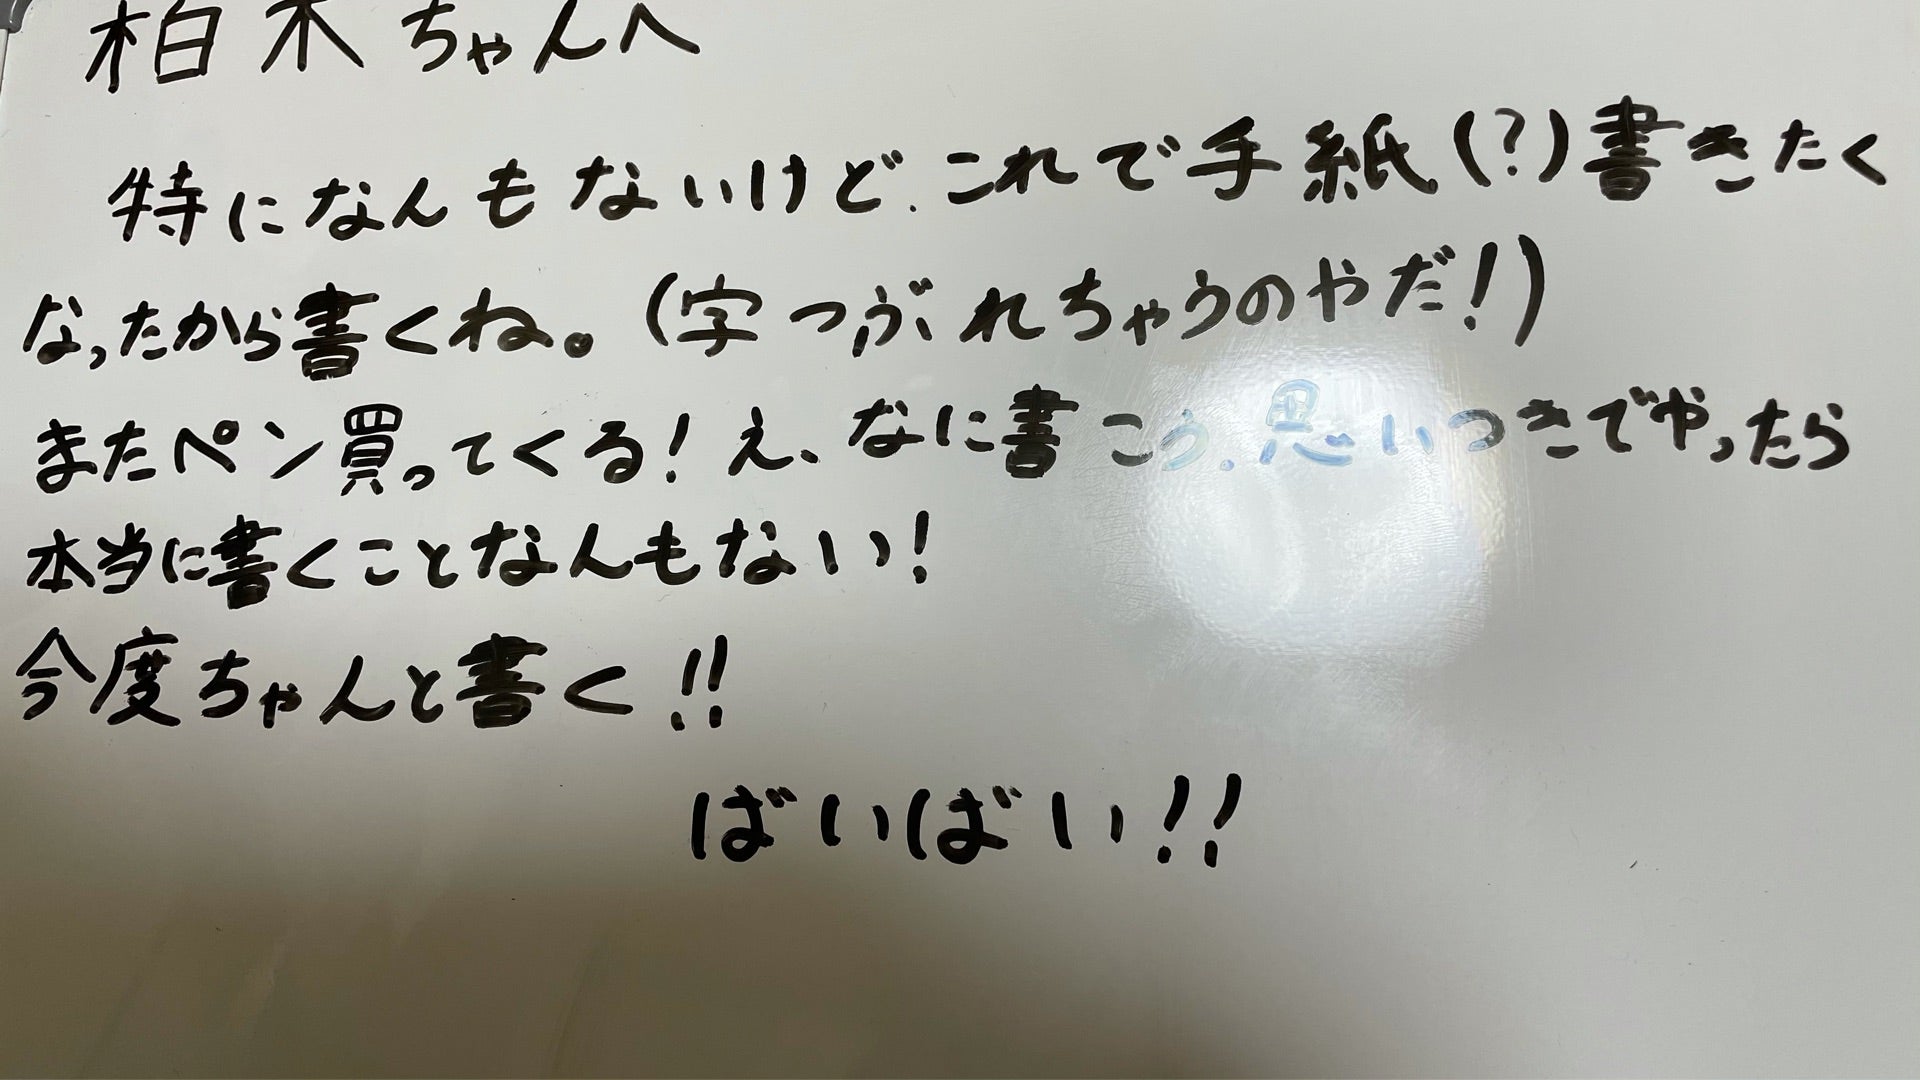 柏木ちゃんへ
特になんもないけど、これで手紙(?)書きたく
なったから書くね。(字つぶれちゃうのやだ!)
またペン買ってくる!え、なに書こう、思いつきでやったら
本当に書くことなんもない!
今度ちゃんと書く!!
ばいばい!!